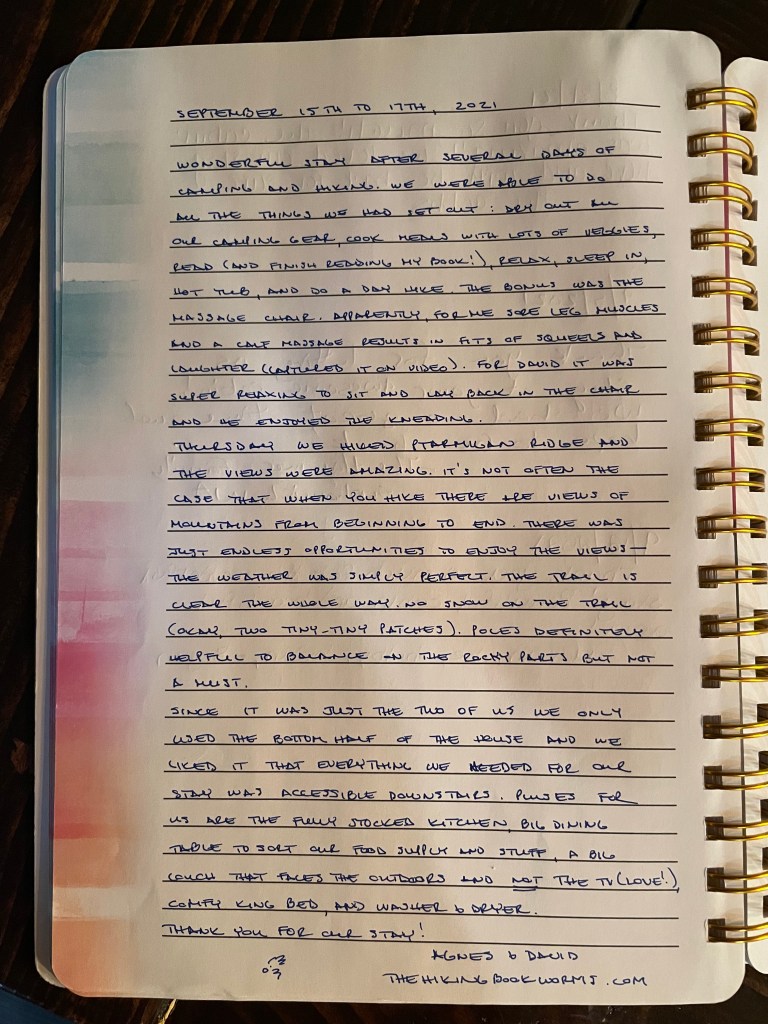 SEPTEMBER 15TH TO 17TH, 2021
WONDERFUL STAY AFTER SEVERAL DAYS OF
CAMPING AND HIKING. WE WERE ABLE TO DO
ALL THE THINGS WE HAD SET OUT: DRY OUT ALL
OUR CAMPING GEAR, COOK MEALS WITH LOTS OF VEGGIES,
READ (AND FINISH READING MY BOOK!), RELAX, SLEEP IN,
HOT TUB, AND DO A DAY HIKE. THE BONUS WAS THE
MASSAGE CHAIR. APPARENTLY, FOR ME SORE LEG MUSCLES
AND A CALF MASSAGE RESULTS IN FITS OF SQUEELS AND
LAUGHTER (CAPTURED IT ON VIDEO). FOR DAVID IT WAS
SUPER RELAXING TO SIT AND LAY BACK IN THE CHAIR
AND HE ENJOYED THE KNEADING.
THURSDAY WE HIKED PTARMIGAN RIDGE AND
THE VIEWS WERE AMAZING. IT'S NOT OFTEN THE
CASE THAT WHEN YOU HIKE THERE ARE VIEWS OF
MOUNTAINS FROM BEGINNING TO END. THERE WAS
JUST ENDLESS OPPORTUNITIES TO ENJOY THE VIEWS—
THE WEATHER WAS SIMPLY PERFECT. THE TRAIL IS
CLEAR THE WHOLE WAY. NO SNOW ON THE TRAIL
(OKAY, TWO TINY-TINY PATCHES). POLES DEFINITELY
HELPFUL TO BALANCE ON THE ROCKY PARTS BUT NOT
A MUST.
SINCE IT WAS JUST THE TWO OF US WE ONLY
USED THE BOTTOM HALF OF THE HOUSE AND WE
LIKED IT THAT EVERYTHING WE NEEDED FOR OUR
STAY WAS ACCESSIBLE DOWNSTAIRS. PLUSES FOR
US ARE THE FULLY STOCKED KITCHEN, BIG DINING
TABLE TO SORT OUR FOOD SUPPLY AND STUFF, A BIG
COUCH THAT FACES THE OUTDOORS AND NOT THE TV (LOVE!),
COMFY KING BED, AND WASHER & DRYER.
THANK YOU FOR OUR STAY!
AGNES & DAVID
THEHIKINGBOOKWORMS.COM